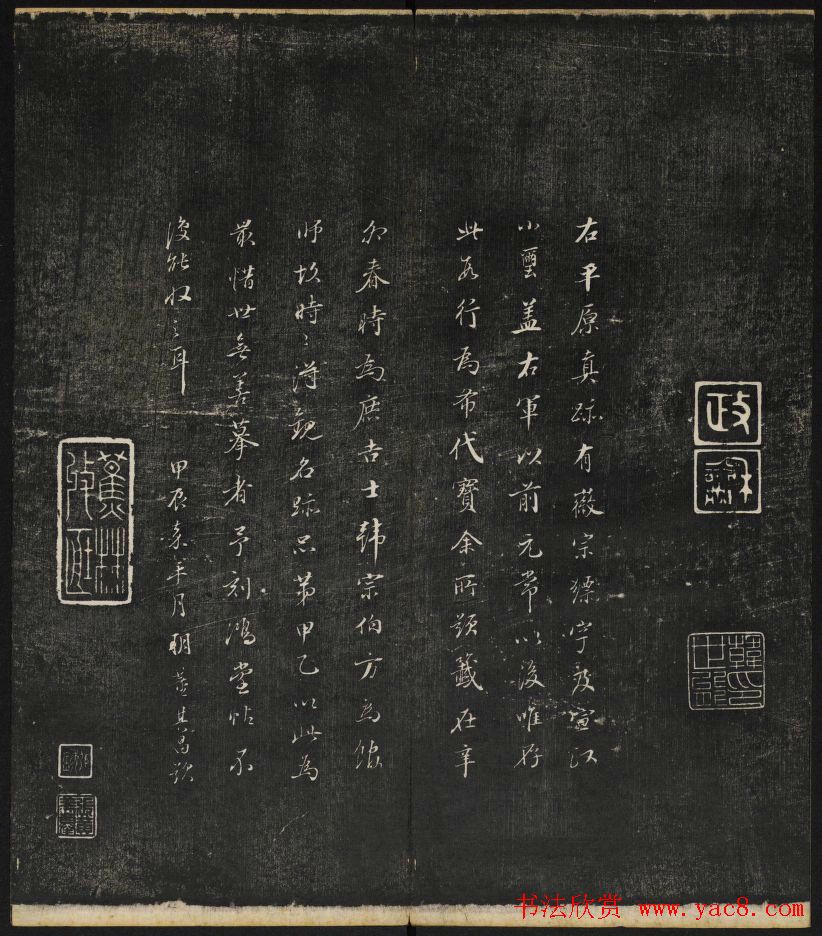 政龢
韓世能印
右平原真跡有徽宗縹字及宣和
小璽盖右軍以前元常以後唯存
此數行為希代寶余所題籤在辛
卯春時為庶吉士韓宗伯方為館
師故時〻得觀名跡品第甲乙以此為
最惜世無善摹者予刻鴻堂帖不
復能收之耳 甲辰嘉平月朔董其昌題
蕉林
书法欣赏 www.yac8.com